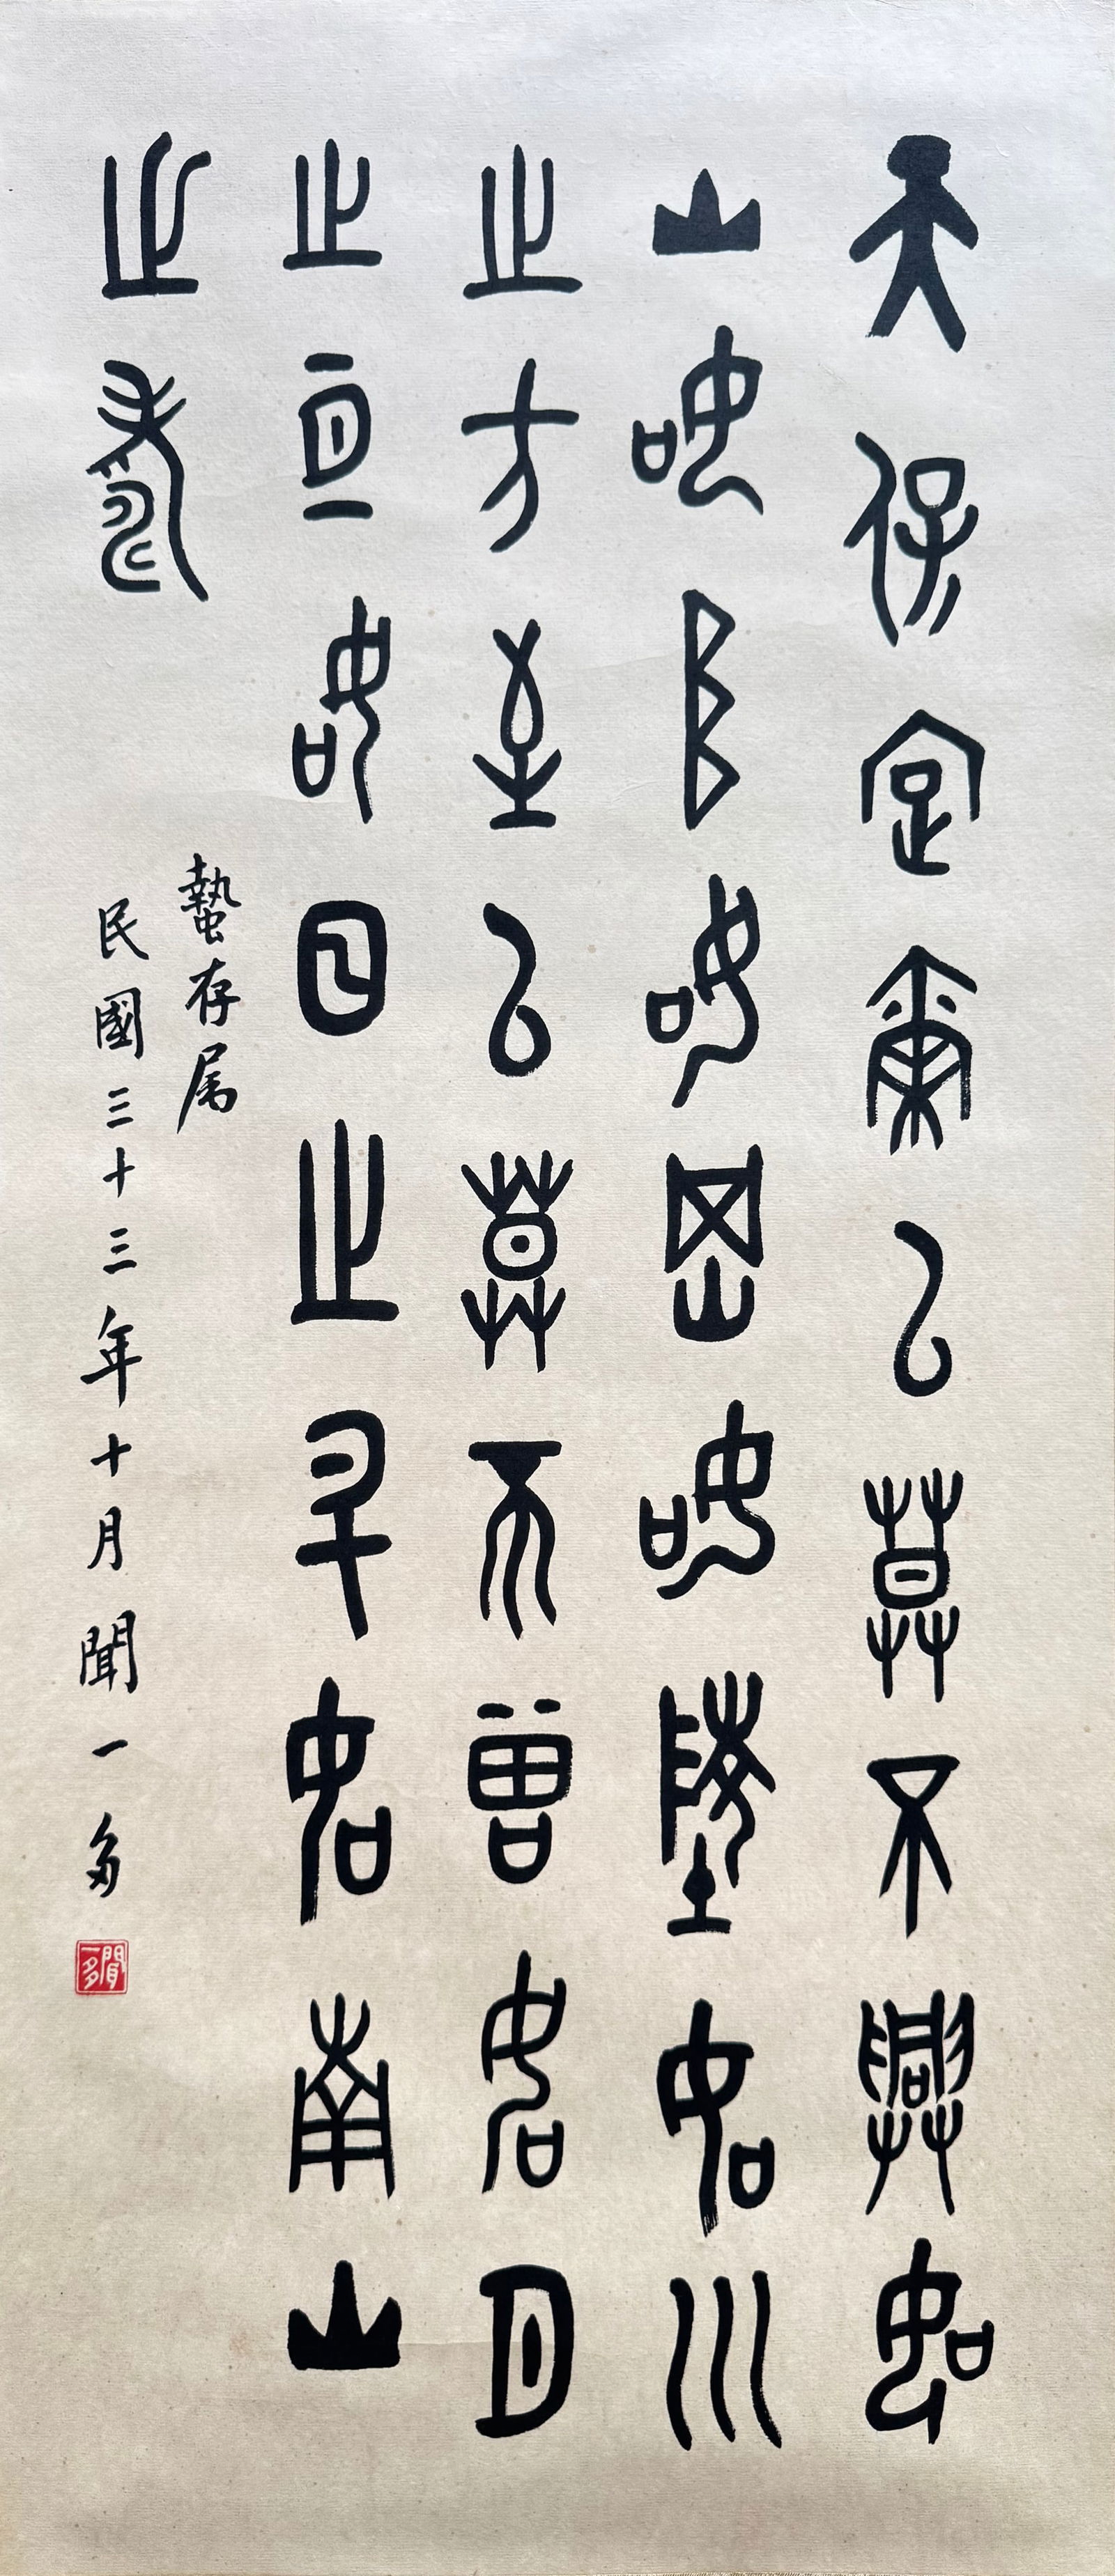 天保定爾以莫不興如
山如阜如岡如陵如川
之方至以莫不曾如月
之亙如日之升如南山
之壽
蟄存属
民國三十三年十月聞一多
聞一多